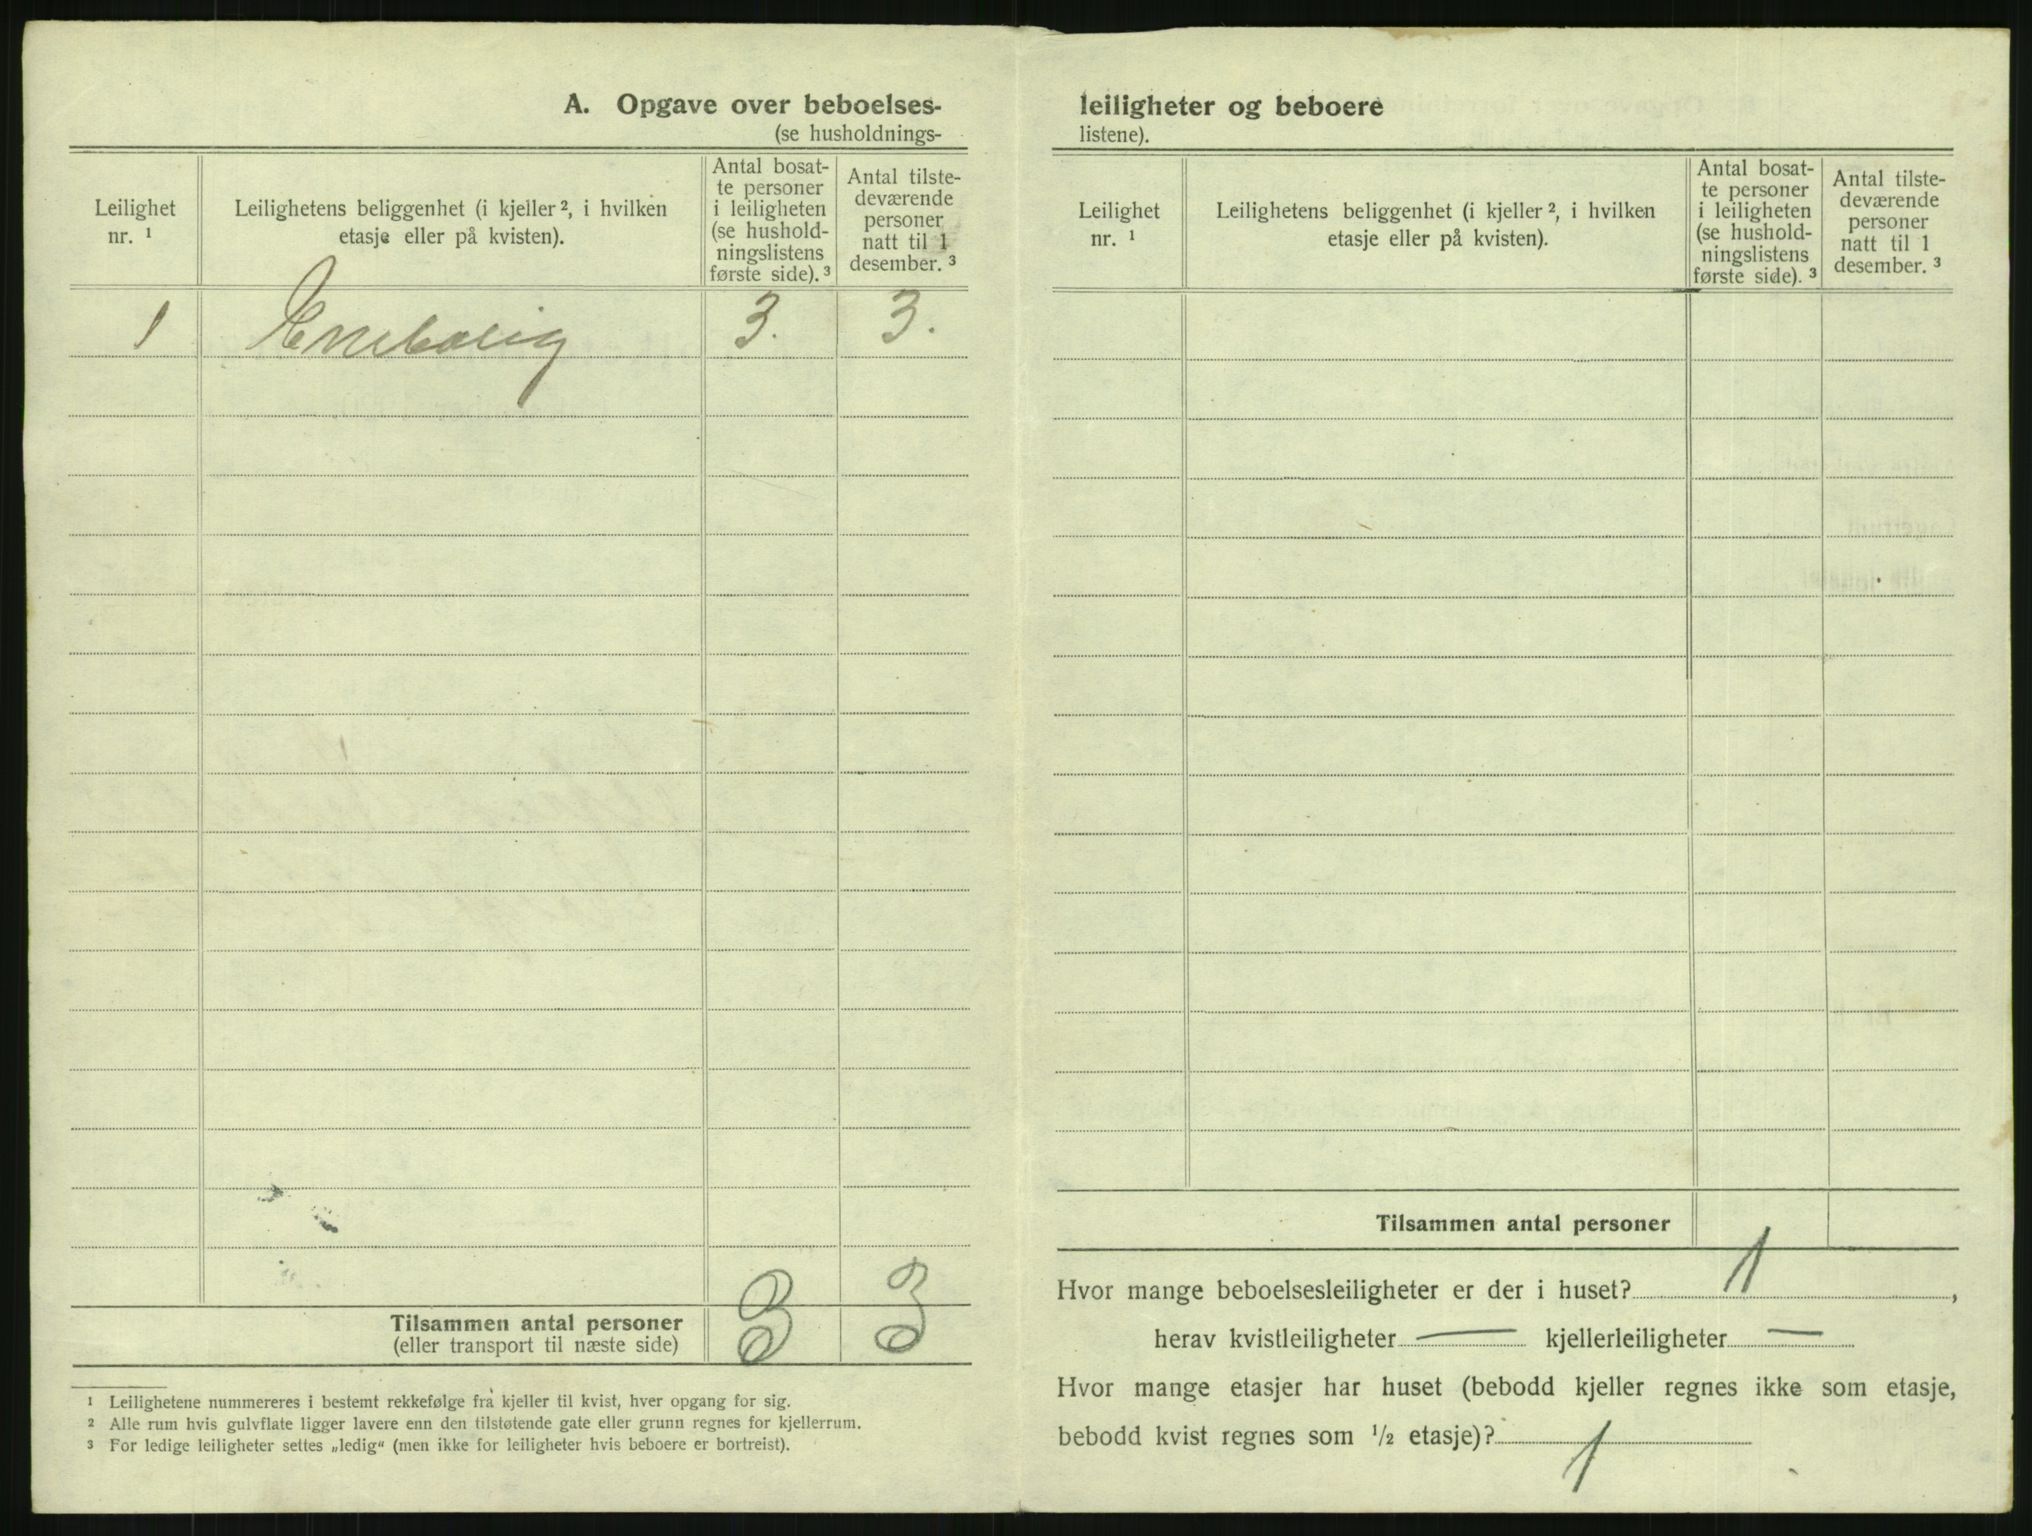 A. Opgave over beboelses-
(se husholdnings-
Leilighet
nr. ¹
Leilighetens beliggenhet (i kjeller ², i hvilken
etasje eller på kvisten).
Antal bosat-
te personer
i leiligheten
(se hushold-
ningslistens
første side). ³
Antal tilste-
deværende
personer
natt til 1
desember. ³
1 Enebolig 3. 3.
Tilsammen antal personer 3 3
(eller transport til næste side)
¹ Leilighetene nummereres i bestemt rekkefølge fra kjeller til kvist, hver opgang for sig.
² Alle rum hvis gulvflate ligger lavere enn den tilstøtende gate eller grunn regnes for kjellerrum.
³ For ledige leiligheter settes „ledig“ (men ikke for leiligheter hvis beboere er bortreist).
leiligheter og beboere
listene).
Leilighet
nr. ¹
Leilighetens beliggenhet (i kjeller ², i hvilken
etasje eller på kvisten).
Antal bosat-
te personer
i leiligheten
(se hushold-
ningslistens
første side). ³
Antal tilste-
deværende
personer
natt til 1
desember. ³
Tilsammen antal personer
Hvor mange beboelsesleiligheter er der i huset? 1,
herav kvistleiligheter — kjellerleiligheter —
Hvor mange etasjer har huset (bebodd kjeller regnes ikke som etasje,
bebodd kvist regnes som ½ etasje)? 1